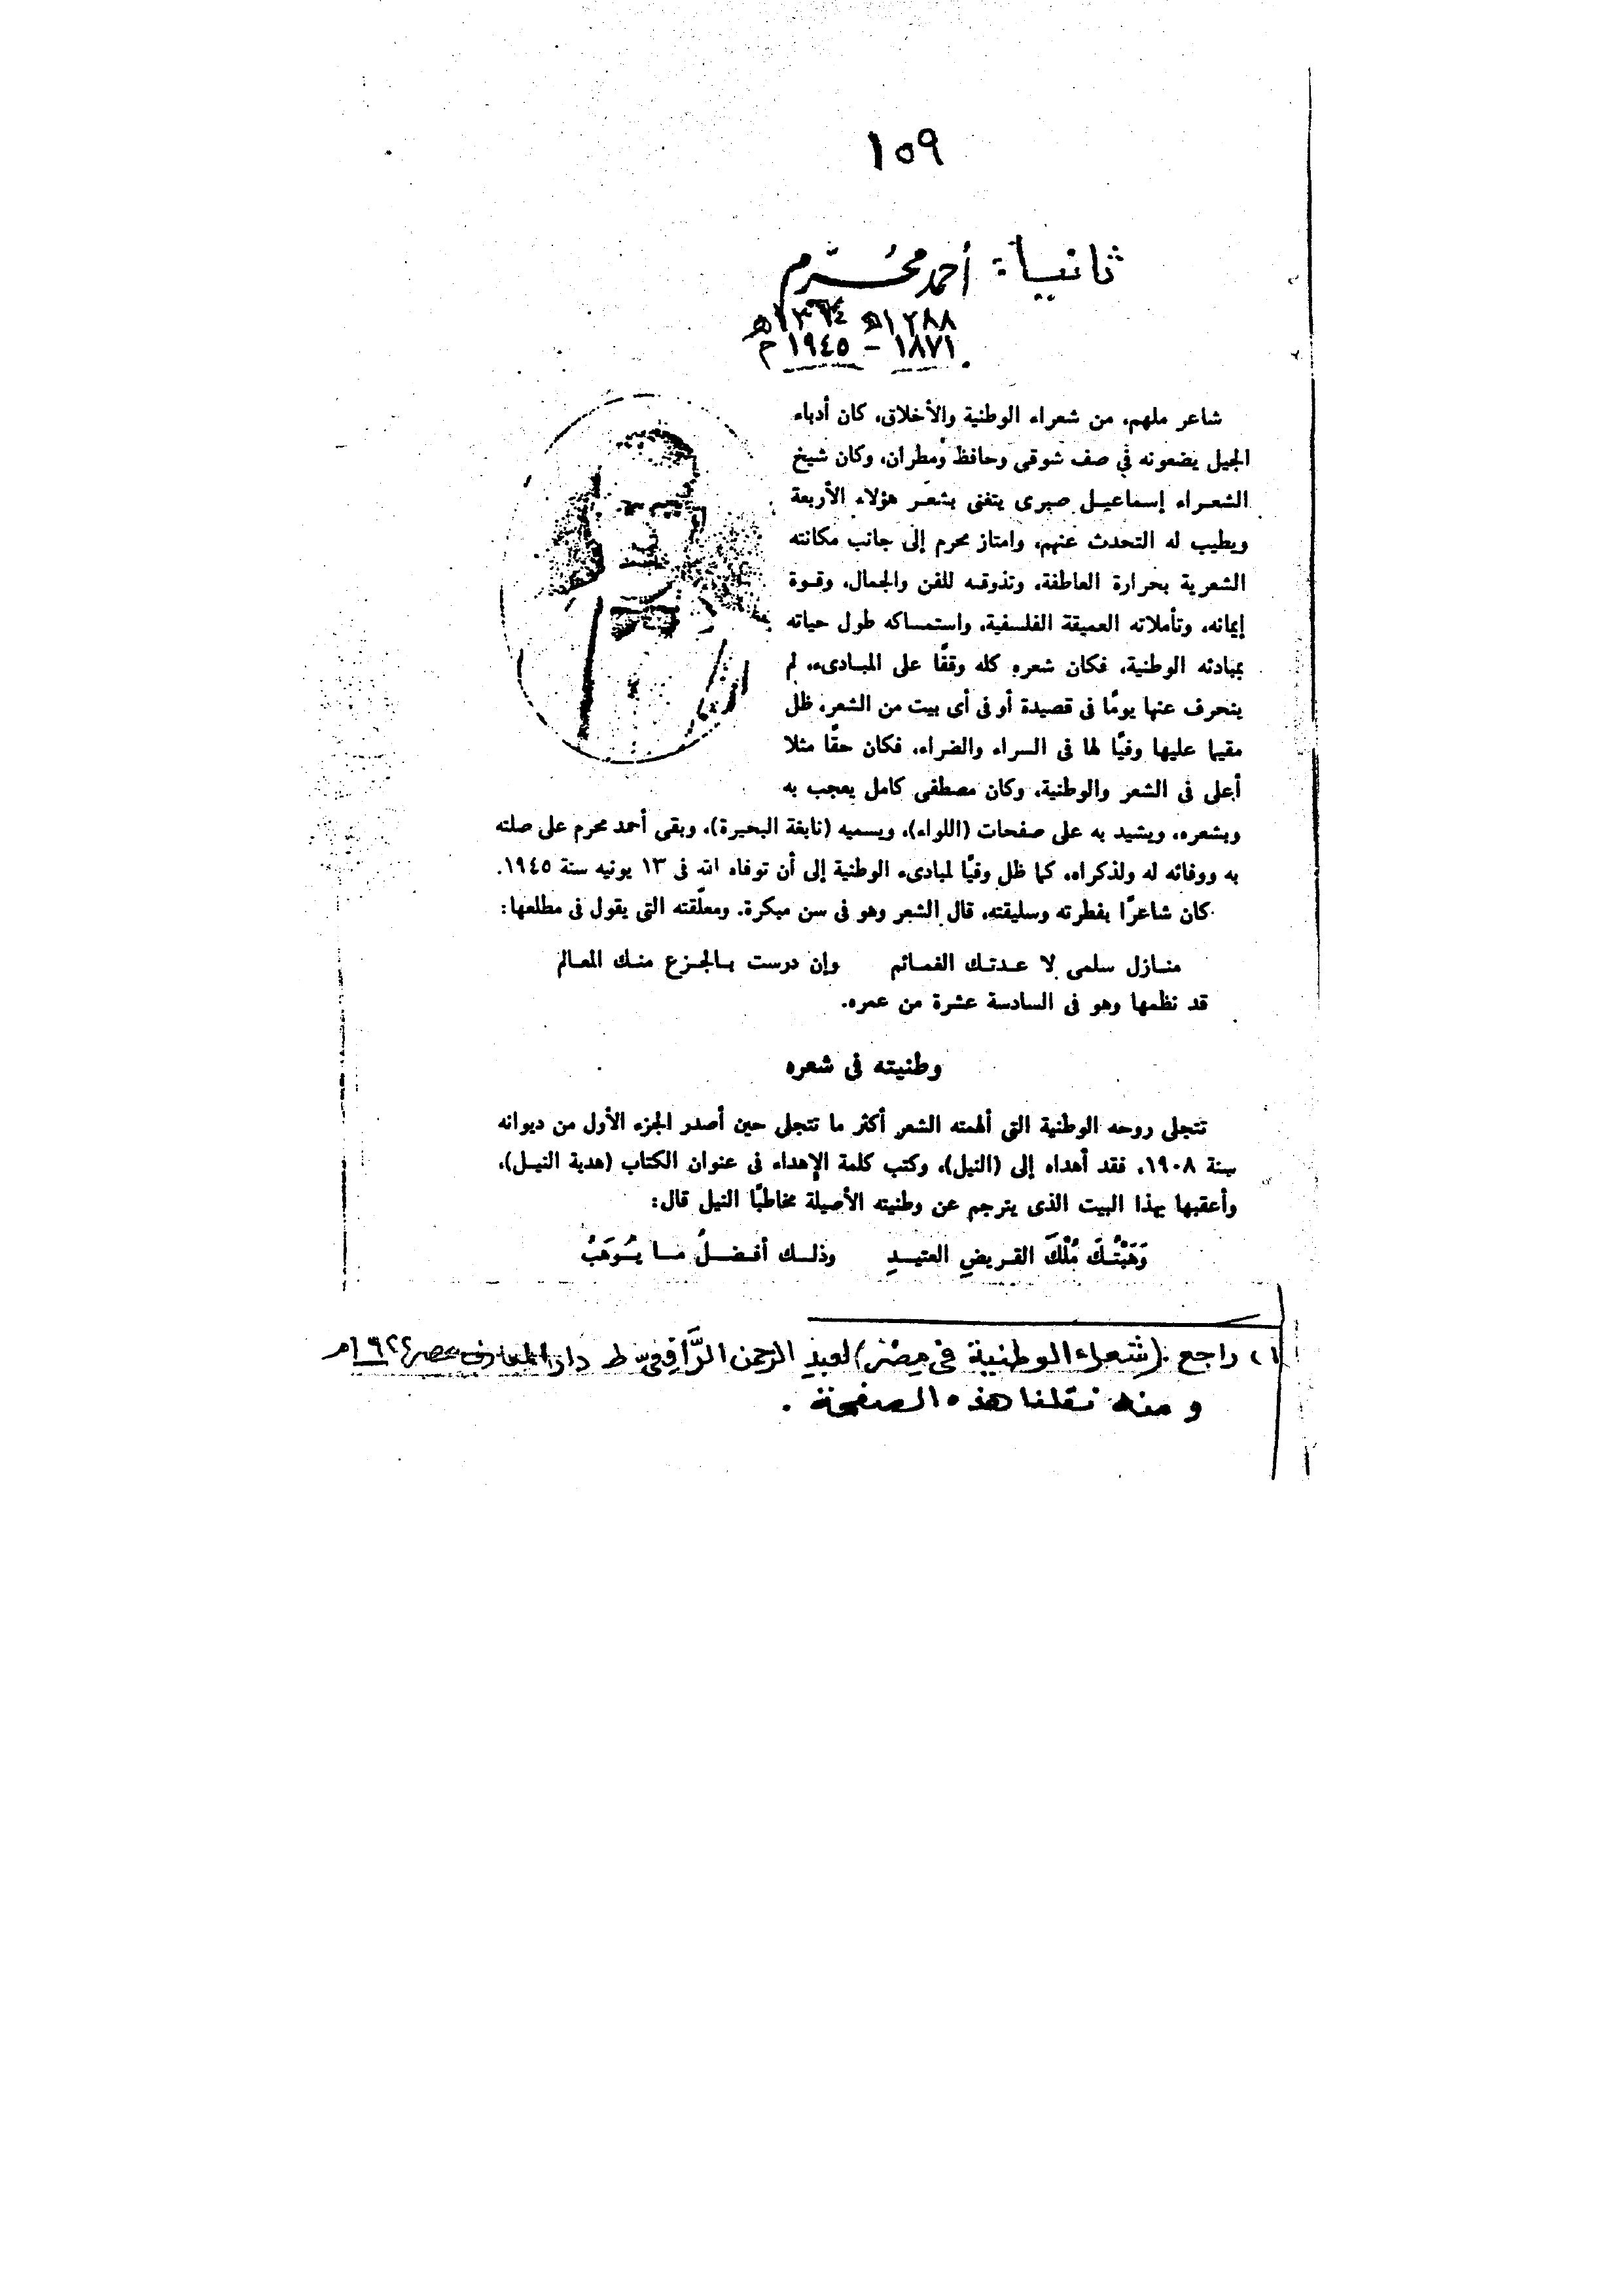 ١٥٩
ثانياً: أحمد محرَّم
١٢٨٨هـ ١٣٦٤هـ
١٨٧١ - ١٩٤٥ م
شاعر ملهم، من شعراء الوطنية والأخلاق، كان أدباء
الجيل يضعونه في صف شوقى وحافظ ومطران، وكان شيخ
الشعراء إسماعيل صبرى يتغنى بشعر هؤلاء الأربعة
ويطيب له التحدث عنهم، وامتاز محرم إلى جانب مكانته
الشعرية بحرارة العاطفة، وتذوقه للفن والجمال، وقوة
إيمانه، وتأملاته العميقة الفلسفية، واستمساكه طول حياته
بمبادئه الوطنية، فكان شعره كله وقفًا على المبادىء، لم
ينحرف عنها يومًا فى قصيدة أو فى أى بيت من الشعر، ظل
مقيما عليها وفيًا لها فى السراء والضراء، فكان حقًا مثلا
أعلى فى الشعر والوطنية، وكان مصطفى كامل يعجب به
وبشعره، ويشيد به على صفحات (اللواء)، ويسميه (نابغة البحيرة)، وبقى أحمد محرم على صلته
به ووفائه له ولذكراه، كما ظل وفيًا لمبادىء الوطنية إلى أن توفاه الله فى ١٣ يونيه سنة ١٩٤٥.
كان شاعرًا بفطرته وسليقته، قال الشعر وهو فى سن مبكرة، ومعلّقته التى يقول فى مطلعها:
منازل سلمى لا عدتك الغمائم وإن درست بالجزع منك المعالم
قد نظمها وهو فى السادسة عشرة من عمره.
وطنيته فى شعره
تتجلى روحه الوطنية التى ألهمته الشعر أكثر ما تتجلى حين أصدر الجزء الأول من ديوانه
سنة ١٩٠٨، فقد أهداه إلى (النيل)، وكتب كلمة الإهداء فى عنوان الكتاب (هدية النيل)،
وأعقبها بهذا البيت الذى يترجم عن وطنيته الأصيلة مخاطبًا النيل قال:
وَهَبْتُكَ مُلْكَ القريضِ العتيدِ وذلك أفضلُ ما يُوهَبُ
١) راجع (شعراء الوطنية فى مِصْر) لعبدِ الرحمن الرَّافِعىّ ط دار المعارف بمصر
و منه نقلنا هذه الصفحة .